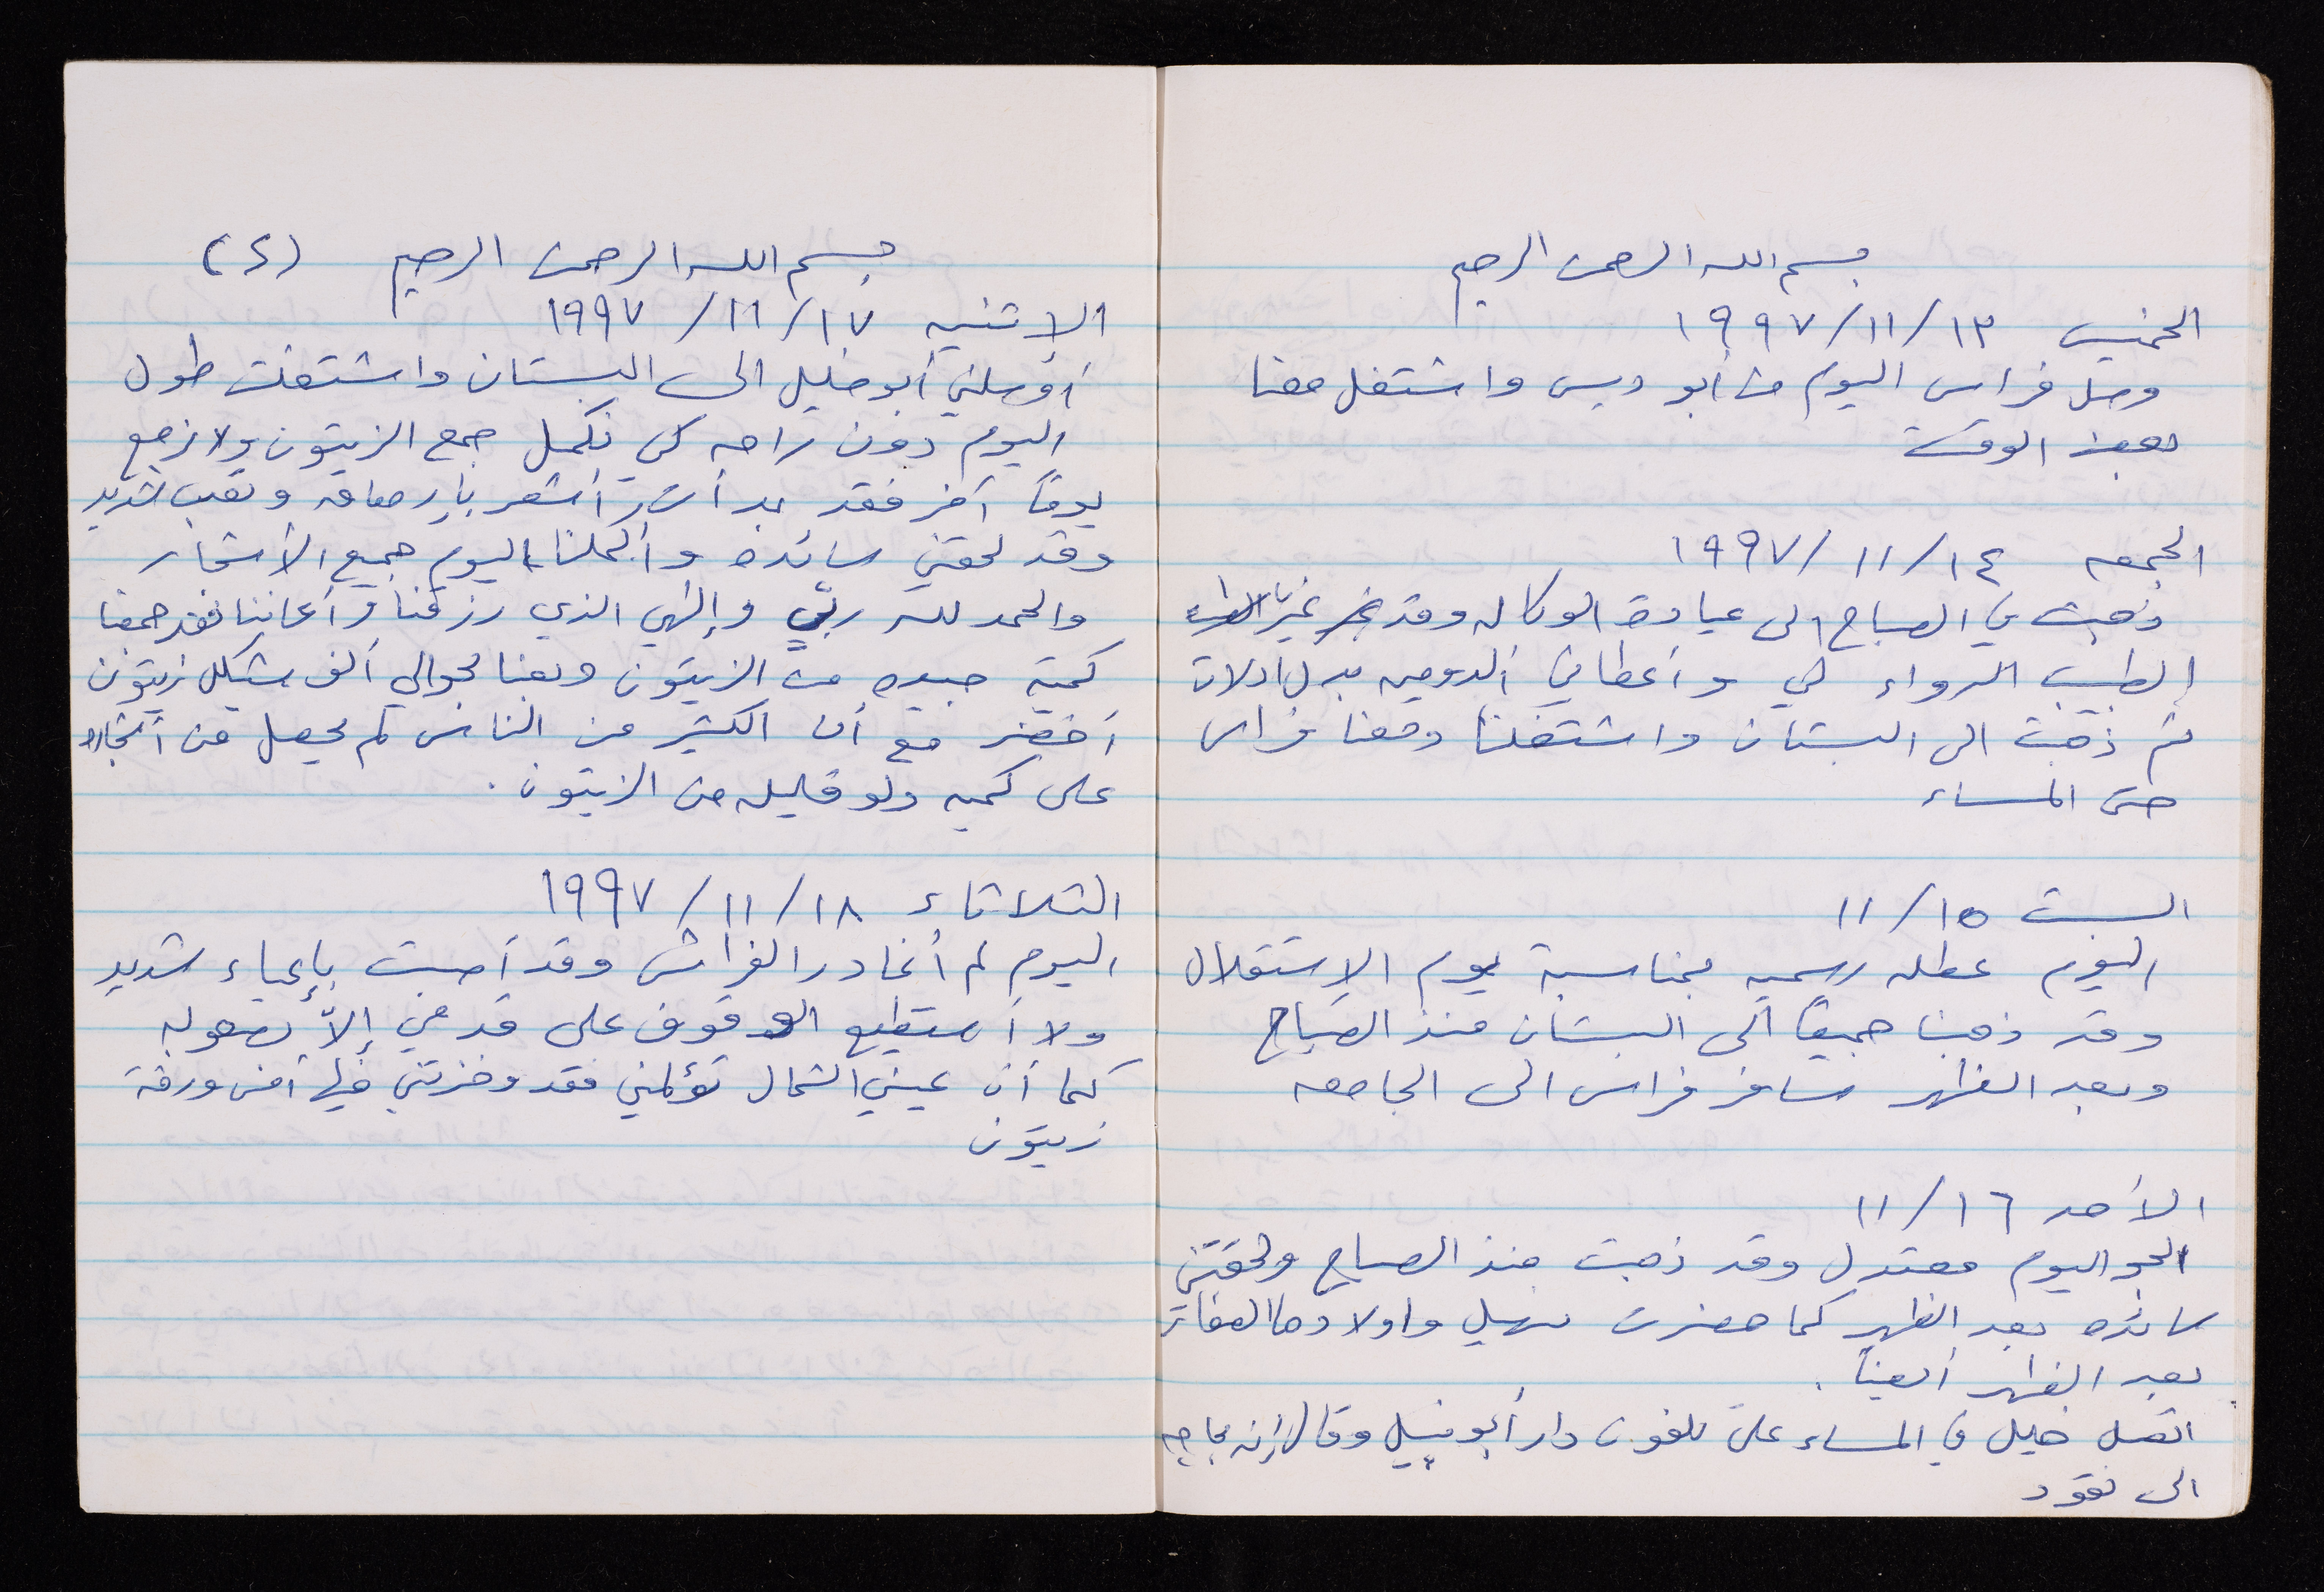 بسم الله الرحمن الرحيم
الخميس ١٣/١١/١٩٩٧
وصل فراس اليوم من أبو ديس واشتغل معنا
بعض الوقت
الجمعه ١٤/١١/١٩٩٧
ذهبت في الصباح الى عيادة الوكاله وقد غير
الطبيب الدواء لي وأعطاني ألدوميه بدل
ثم ذهبت الى البستان واشتغلنا ومعنا فراس
حتى المساء
السبت ١٥/١١
اليوم عطله رسميه بمناسبة يوم الاستقلال
وقد ذهبنا جميعًا الى البستان منذ الصباح
وبعد الظهر سافر فراس الى الجامعه
الأحد ١٦/١١
الجو اليوم معتدل وقد ذهبت منذ الصباح ولحقتني
سائده بعد الظهر كما حضرت سهيل واولادها
بعد الظهر أيضًا.
اتصل خليل في المساء على تلفون دار أبو نبيل وقال إنه بحاجه
الى نقود
بسم الله الرحمن الرحيم (٢)
الاثنين ١٧/١١/١٩٩٧
أوصلني أبو خليل الى البستان واشتغلت طول
اليوم دون راحه كي نكمل جمع الزيتون ولا نرجع
يومًا آخر فقد بدأت أشعر بإرهاق وتعب شديد
وقد لحقتني سائده وأكملنا اليوم جميع الأشجار
والحمد لله ربّي وإلهي الذي رزقنا وأعاننا فقد جمعنا
كمّية جيده من الزيتون وبعنا بحوالي ألف شيكل زيتون
أخضر مع أن الكثير من الناس لم يحصل من أشجاره
على كميه ولو قليله من الزيتون.
الثلاثاء ١٨/١١/١٩٩٧
اليوم لم أغادر الفراش وقد أصبت بإعياء شديد
ولا أستطيع الوقوف على قدمي إلاّ بصعوبه
كما أن عيني الشمال تؤلمني فقد وخزتني فيها أمس ورقة
زيتون